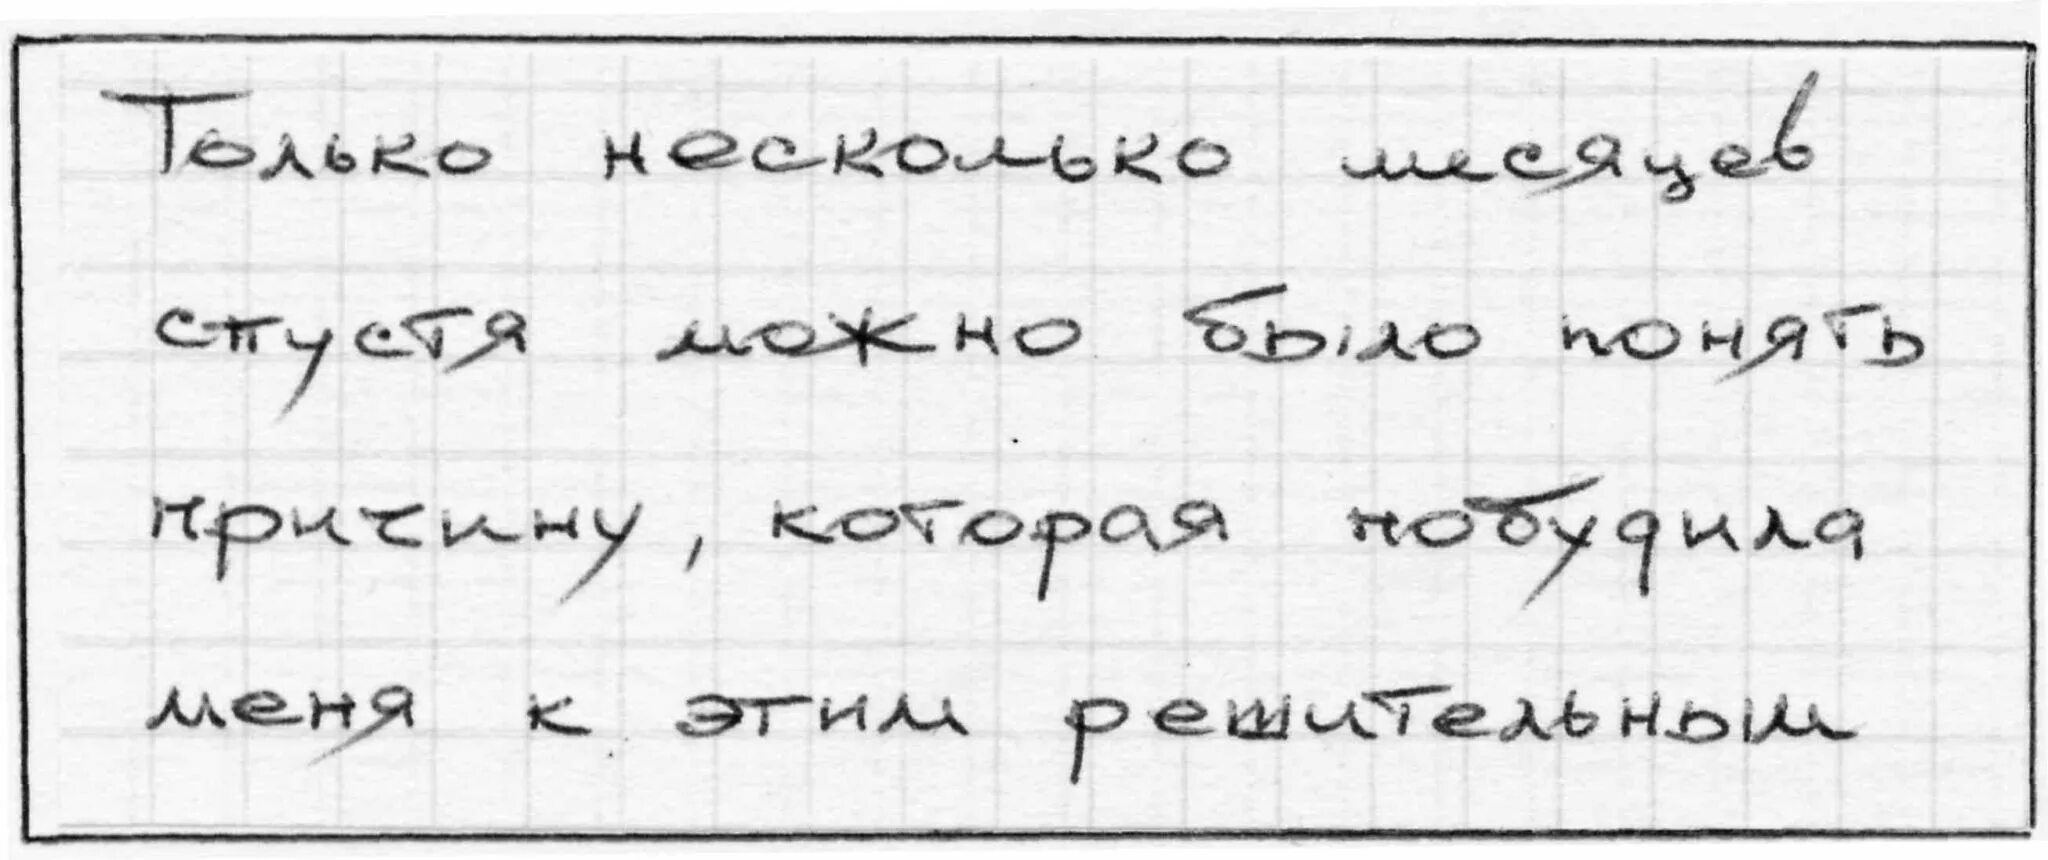 Только несколько месяцев
спустя можно было понять
причину, которая побудила
меня к этим решительным